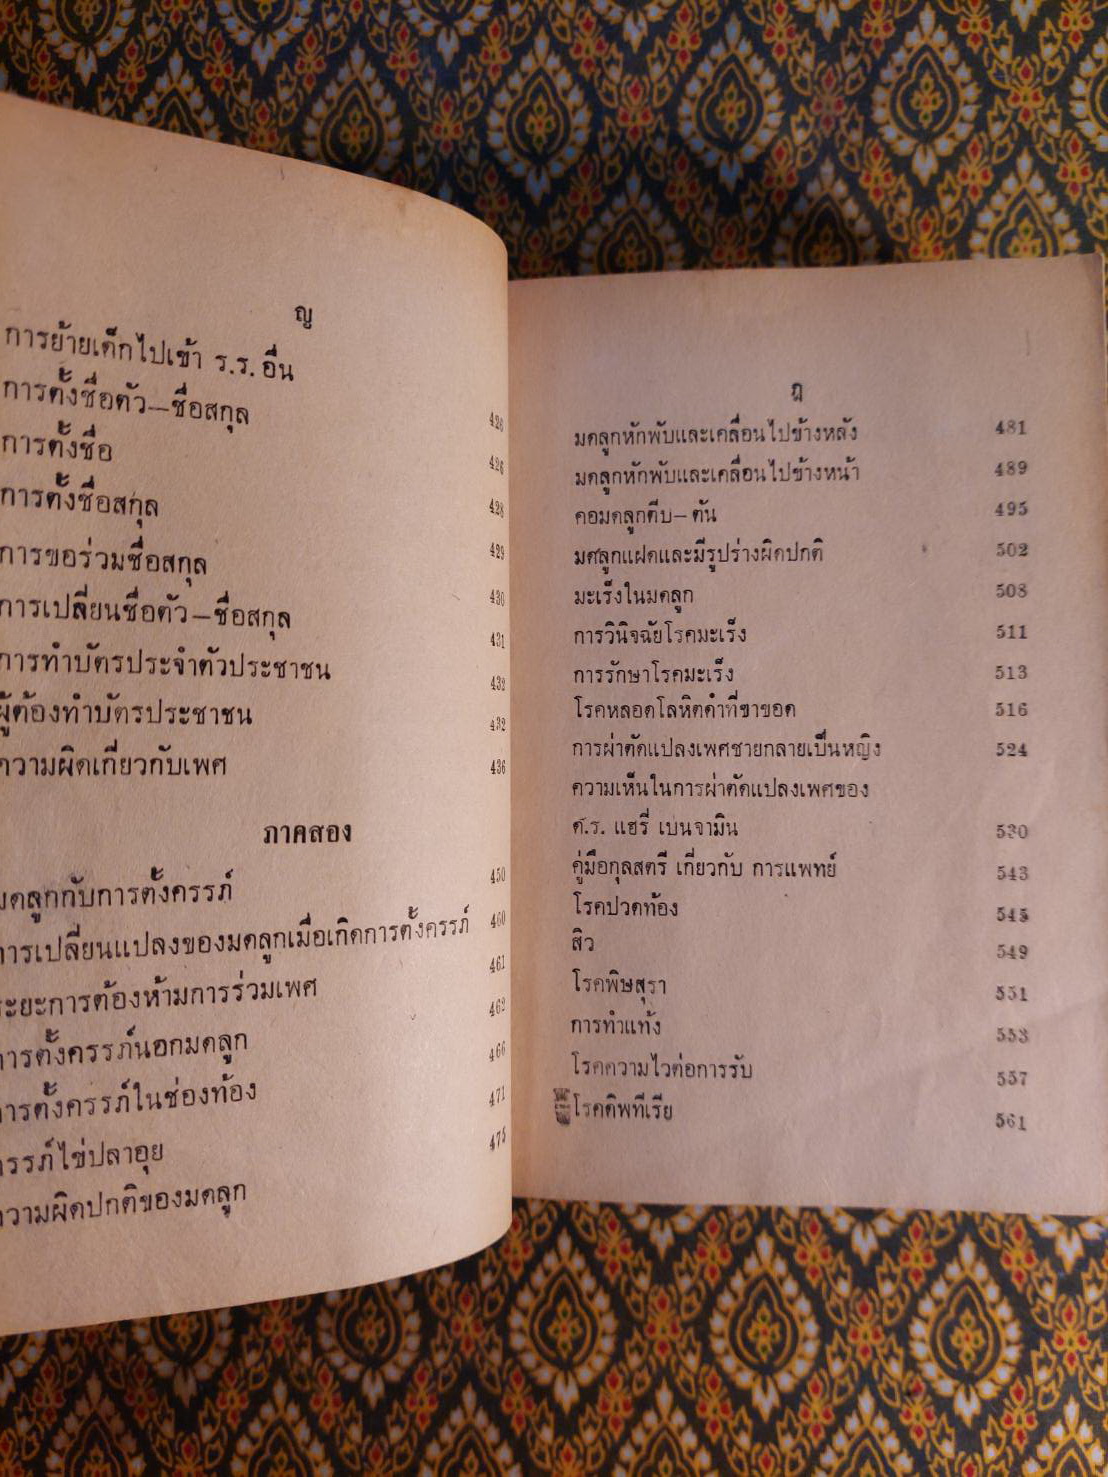 ญ
การย้ายเด็กไปเข้า ร.ร. อื่น
การตั้งชื่อตัว—ชื่อสกุล 426
การตั้งชื่อ 426
การตั้งชื่อสกุล 428
การขอร่วมชื่อสกุล 429
การเปลี่ยนชื่อตัว—ชื่อสกุล 430
การทำบัตรประจำตัวประชาชน 431
ผู้ต้องทำบัตรประชาชน 432
ความผิดเกี่ยวกับเพศ 432
436
ภาคสอง
มดลูกกับการตั้งครรภ์ 450
การเปลี่ยนแปลงของมดลูกเมื่อเกิดการตั้งครรภ์ 460
ระยะการต้องห้ามการร่วมเพศ 461
การตั้งครรภ์นอกมดลูก 462
การตั้งครรภ์ในช่องท้อง 466
ครรภ์ไข่ปลาอุย 471
ความผิดปกติของมดลูก 475
ฎ
มดลูกหักพับและเคลื่อนไปข้างหลัง 481
มดลูกหักพับและเคลื่อนไปข้างหน้า 489
คอมดลูกตีบ—ตัน 495
มดลูกแฝดและมีรูปร่างผิดปกติ 502
มะเร็งในมดลูก 508
การวินิจฉัยโรคมะเร็ง 511
การรักษาโรคมะเร็ง 513
โรคหลอดโลหิตดำที่ขาขอด 516
การผ่าตัดแปลงเพศชายกลายเป็นหญิง 524
ความเห็นในการผ่าตัดแปลงเพศของ
ศ.ร. แฮรี่ เบนจามิน 530
คู่มือกุลสตรี เกี่ยวกับ การแพทย์ 543
โรคปวดท้อง 545
สิว 549
โรคพิษสุรา 551
การทำแท้ง 553
โรคความไวต่อการรับ 557
โรคดิพทีเรีย 561